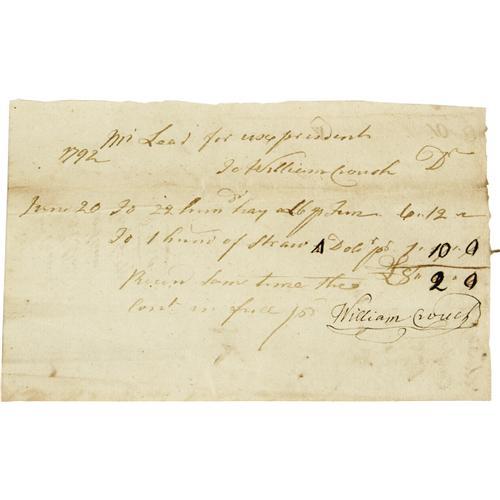 Mr Lear for us president
1792 To William Crouch Dr
June 20 To 22 hund hay a 6 p hun 6 " 12 "
To 1 hund of Straw A Dolr pr 1 " 10 " 0
£8 " 2 " 0
same time the
cont in full pr William Crouch